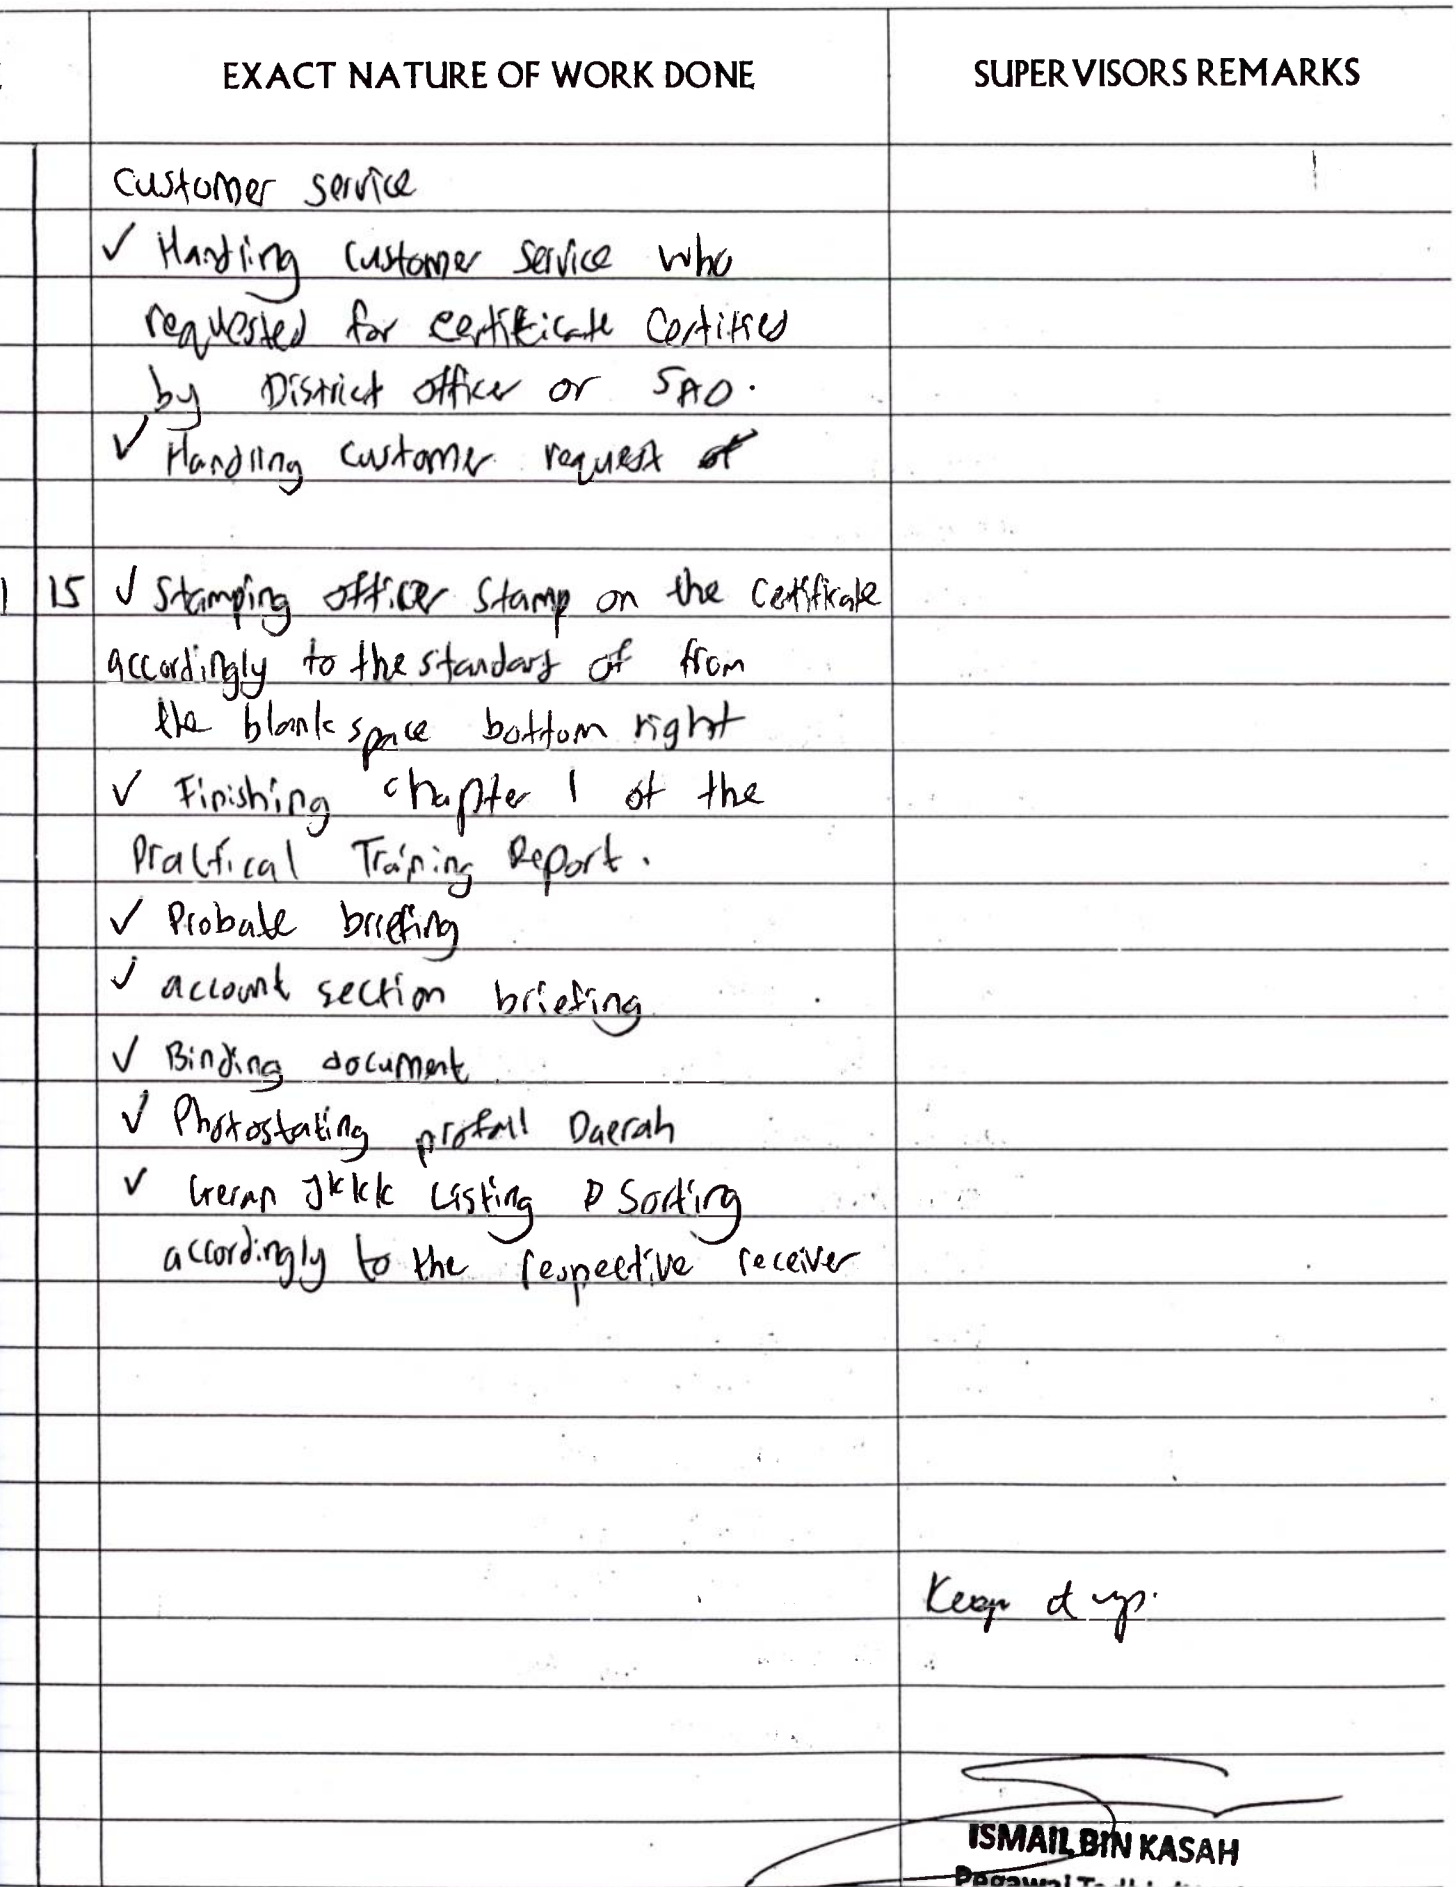 EXACT NATURE OF WORK DONE SUPERVISORS REMARKS
Customer service
✓ Handling customer service who
requested for certificate certified
by District officer or SAO.
✓ Handling customer request of
15 ✓ Stamping officer stamp on the certificate
accordingly to the standard of from
the blank space bottom right
✓ Finishing chapter 1 of the
Practical Training Report.
✓ Probate briefing
✓ account section briefing
✓ Binding document
✓ Photostating profail Daerah
✓ Geran JKKK Listing & Sorting
accordingly to the respective receiver
Keep it up.
ISMAIL BIN KASAH
Pegawai